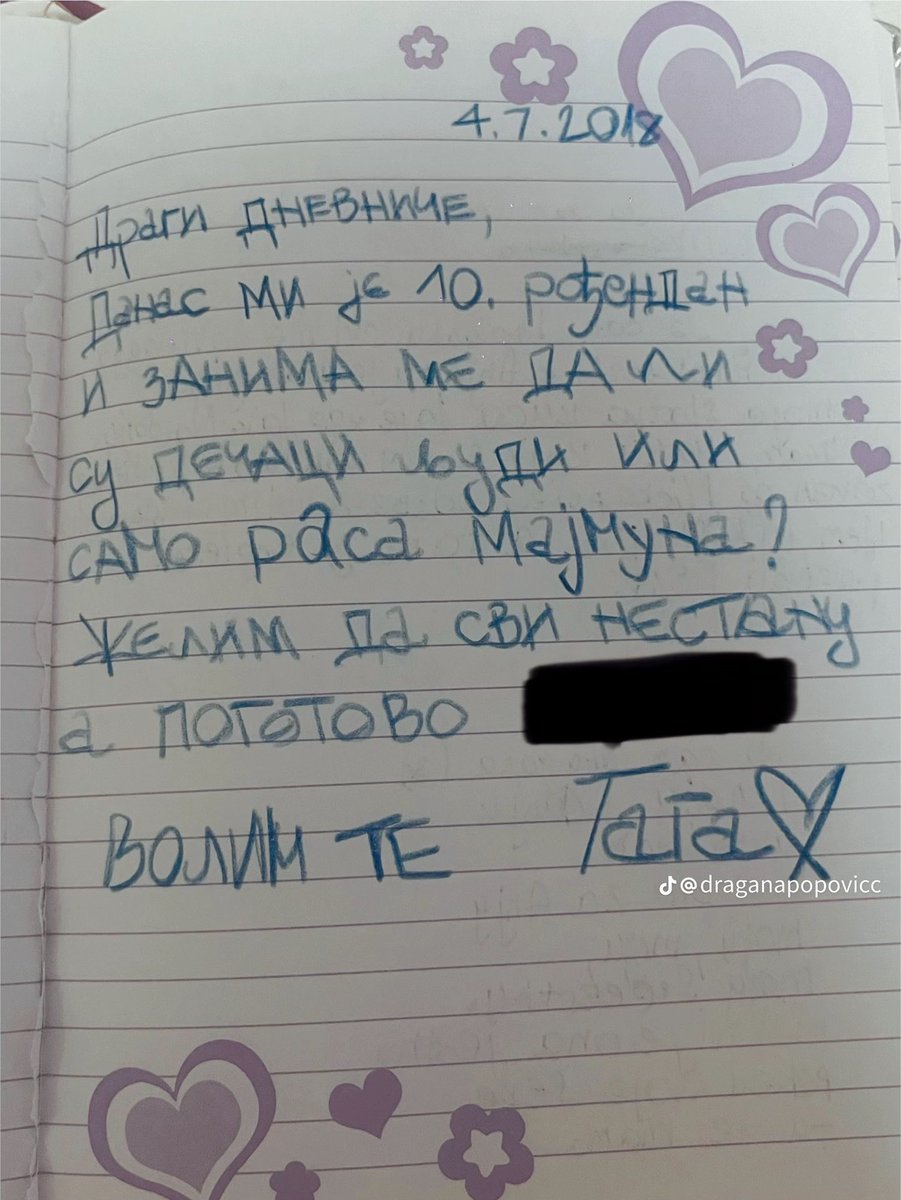 4.7.2018
Драги ДНЕВНИЧЕ,
Данас МИ је 10. рођенДан
И ЗАНИМА МЕ ДА ЛИ
су ДЕЧАЦИ људи ИЛИ
САМО раса Мајмуна?
ЖЕЛИМ Да СВИ НЕСТАНу
а ПОГОТОВО
ВОЛИМ ТЕ Тата
@draganapopovicc